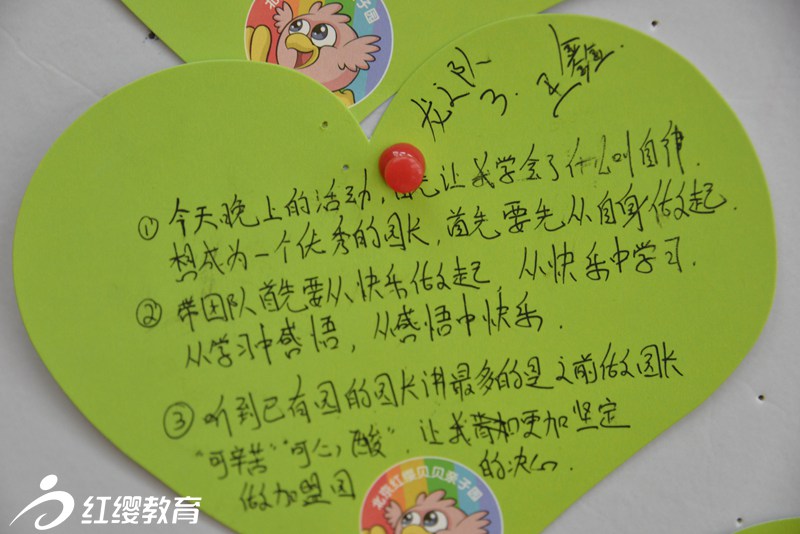 龙之队
3. 王
①今天晚上的活动,首先让我学会了什么叫自律.
想成为一个优秀的园长,首先要先从自身做起.
②带团队首先要从快乐做起,从快乐中学习.
从学习中感悟,从感悟中快乐.
③听到已有园的园长讲最多的是之前做园长
“可辛苦”“可心酸”.让我更加坚定
做加盟园的决心.
北京红缨贝贝亲子园
红缨教育